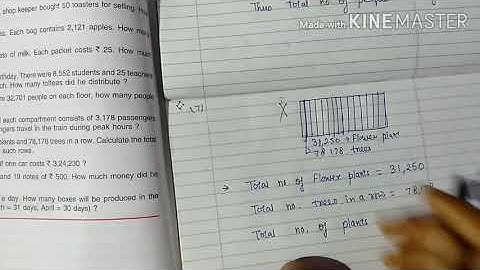 shop keeper bought 50 toasters for selling. How
Each bag contains 2,121 apples. How many
of milk. Each packet costs ₹ 25. How much
birthday. There were 8,552 students and 25 teachers
How many toffees did he distribute ?
32,701 people on each floor, how many people
each compartment consists of 3,178 passengers
travel in the train during peak hours ?
plants and 78,178 trees in a row. Calculate the total
such rows.
of one car costs ₹ 3,24,230 ?
and 10 notes of ₹ 500. How much money did
a day. How many boxes will be produced in the
= 31 days, April = 30 days) ?
Thus Total no. of
Made with KINEMASTER
31,250 → Flower plant
78,178 trees
→ Total no. of Flower plants = 31,250
Total no. trees in a row = 78,178
Total no. of plants